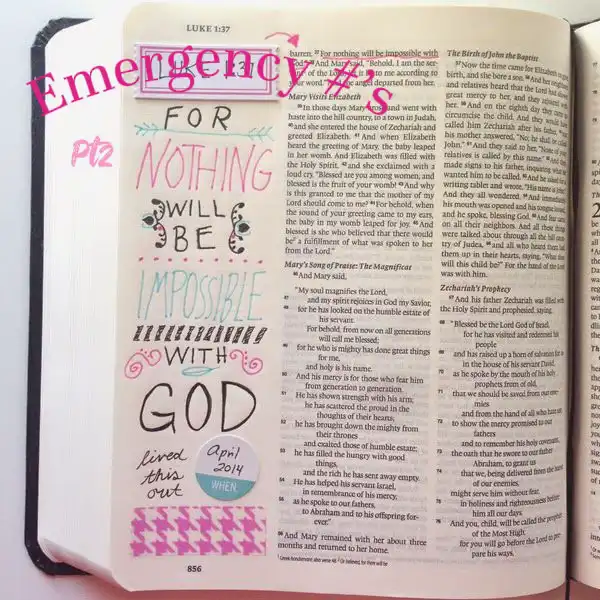 LUKE 1:37
Emergency #'s
Pt2
LUKE 1:37
FOR
NOTHING
WILL
BE
IMPOSSIBLE
WITH
GOD
lived
this
out
April
2014
WHEN
856
barren. 37 For nothing will be impossible with
God." 38 And Mary said, "Behold, I am the ser-
of the Lord; let it be to me according to
your word." the angel departed from her.
Mary Visits Elizabeth
39 In those days Mary arose and went with
haste into the hill country, to a town in Judah,
40 and she entered the house of Zechariah and
greeted Elizabeth. 41 And when Elizabeth
heard the greeting of Mary, the baby leaped
in her womb. And Elizabeth was filled with
the Holy Spirit, 42 and she exclaimed with a
loud cry, "Blessed are you among women, and
blessed is the fruit of your womb! 43 And why
is this granted to me that the mother of my
Lord should come to me? 44 For behold, when
the sound of your greeting came to my ears,
the baby in my womb leaped for joy. 45 And
blessed is she who believed that there would
be a fulfillment of what was spoken to her
from the Lord."
Mary's Song of Praise: The Magnificat
46 And Mary said,
"My soul magnifies the Lord,
47 and my spirit rejoices in God my Savior,
48 for he has looked on the humble estate of
his servant.
For behold, from now on all generations
will call me blessed;
49 for he who is mighty has done great things
for me,
and holy is his name.
50 And his mercy is for those who fear him
from generation to generation.
51 He has shown strength with his arm;
he has scattered the proud in the
thoughts of their hearts;
52 he has brought down the mighty from
their thrones
and exalted those of humble estate;
53 he has filled the hungry with good
things,
and the rich he has sent away empty.
54 He has helped his servant Israel,
in remembrance of his mercy,
55 as he spoke to our fathers,
to Abraham and to his offspring for-
ever."
56 And Mary remained with her about three
months and returned to her home.
The Birth of John the Baptist
57 Now the time came for Elizabeth to give
birth, and she bore a son. 58 And her neighbors
and relatives heard that the Lord had shown
great mercy to her, and they rejoiced with
her. 59 And on the eighth day they came to
circumcise the child. And they would have
called him Zechariah after his father, 60 but
his mother answered, "No; he shall be called
John." 61 And they said to her, "None of your
relatives is called by this name." 62 And they
made signs to his father, inquiring what he
wanted him to be called. 63 And he asked for a
writing tablet and wrote, "His name is John."
And they all wondered. 64 And immediately
his mouth was opened and his tongue loosed,
and he spoke, blessing God. 65 And fear came
on all their neighbors. And all these things
were talked about through all the hill coun-
try of Judea, 66 and all who heard them laid
them up in their hearts, saying, "What then
will this child be?" For the hand of the Lord
was with him.
Zechariah's Prophecy
67 And his father Zechariah was filled with
the Holy Spirit and prophesied, saying,
68 "Blessed be the Lord God of Israel,
for he has visited and redeemed his
people
69 and has raised up a horn of salvation for us
in the house of his servant David,
70 as he spoke by the mouth of his holy
prophets from of old,
71 that we should be saved from our ene-
mies
and from the hand of all who hate us;
72 to show the mercy promised to our
fathers
and to remember his holy covenant,
73 the oath that he swore to our father
Abraham, to grant us
74 that we, being delivered from the hand
of our enemies,
might serve him without fear,
75 in holiness and righteousness before
him all our days.
76 And you, child, will be called the prophet
of the Most High;
for you will go before the Lord to pre-
pare his ways,